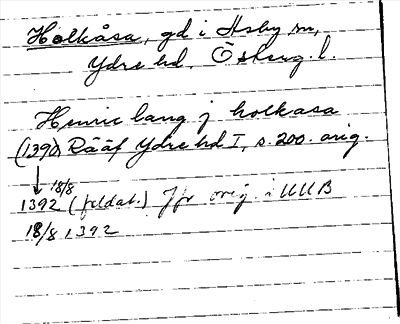 Holkåsa, gd i Asby sn,
Ydre hd. Österg. l.
Henric lang j holkasa
(1390) Rääf Ydre hd I, s. 200. orig.
18/8
1392 (feldat.) Jfr orig. i UUB
18/8 1392